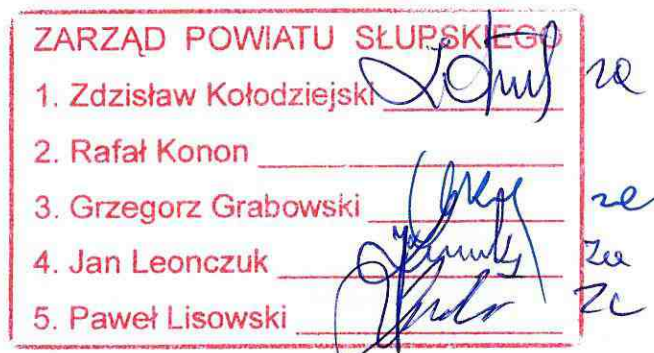 ZARZĄD POWIATU SŁUPSKIEGO
1. Zdzisław Kołodziejski za
2. Rafał Konon
3. Grzegorz Grabowski za
4. Jan Leonczuk za
5. Paweł Lisowski za